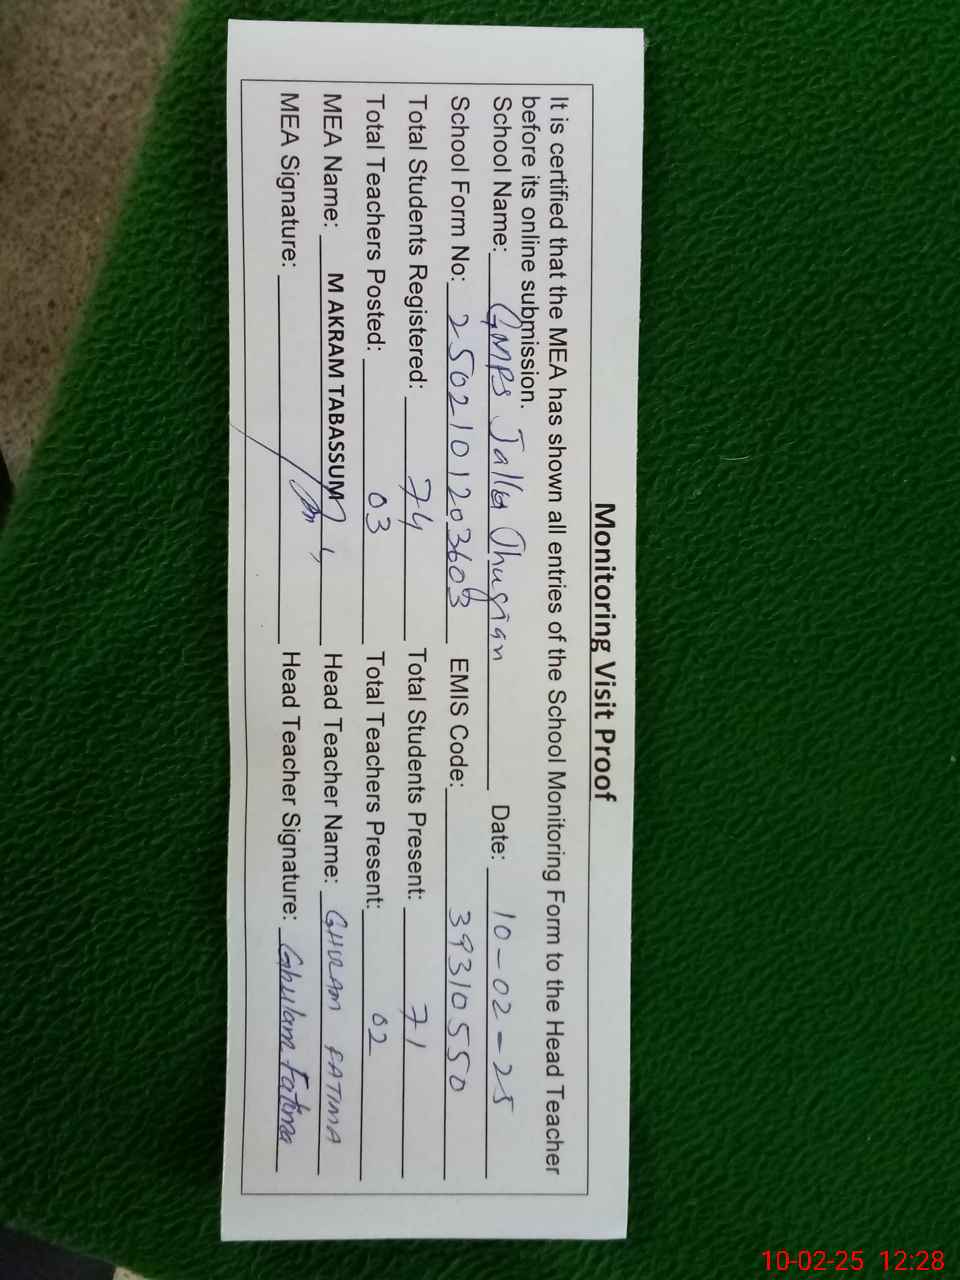 Monitoring Visit Proof
It is certified that the MEA has shown all entries of the School Monitoring Form to the Head Teacher
before its online submission.
School Name: GMPS Jalla Jhugian Date: 10-02-25
School Form No: 2502101203603 EMIS Code: 39310550
Total Students Registered: 74 Total Students Present: 71
Total Teachers Posted: 03 Total Teachers Present: 02
MEA Name: M AKRAM TABASSUM Head Teacher Name: GHULAM FATIMA
MEA Signature: Head Teacher Signature: Ghulam Fatima
10-02-25 12:28